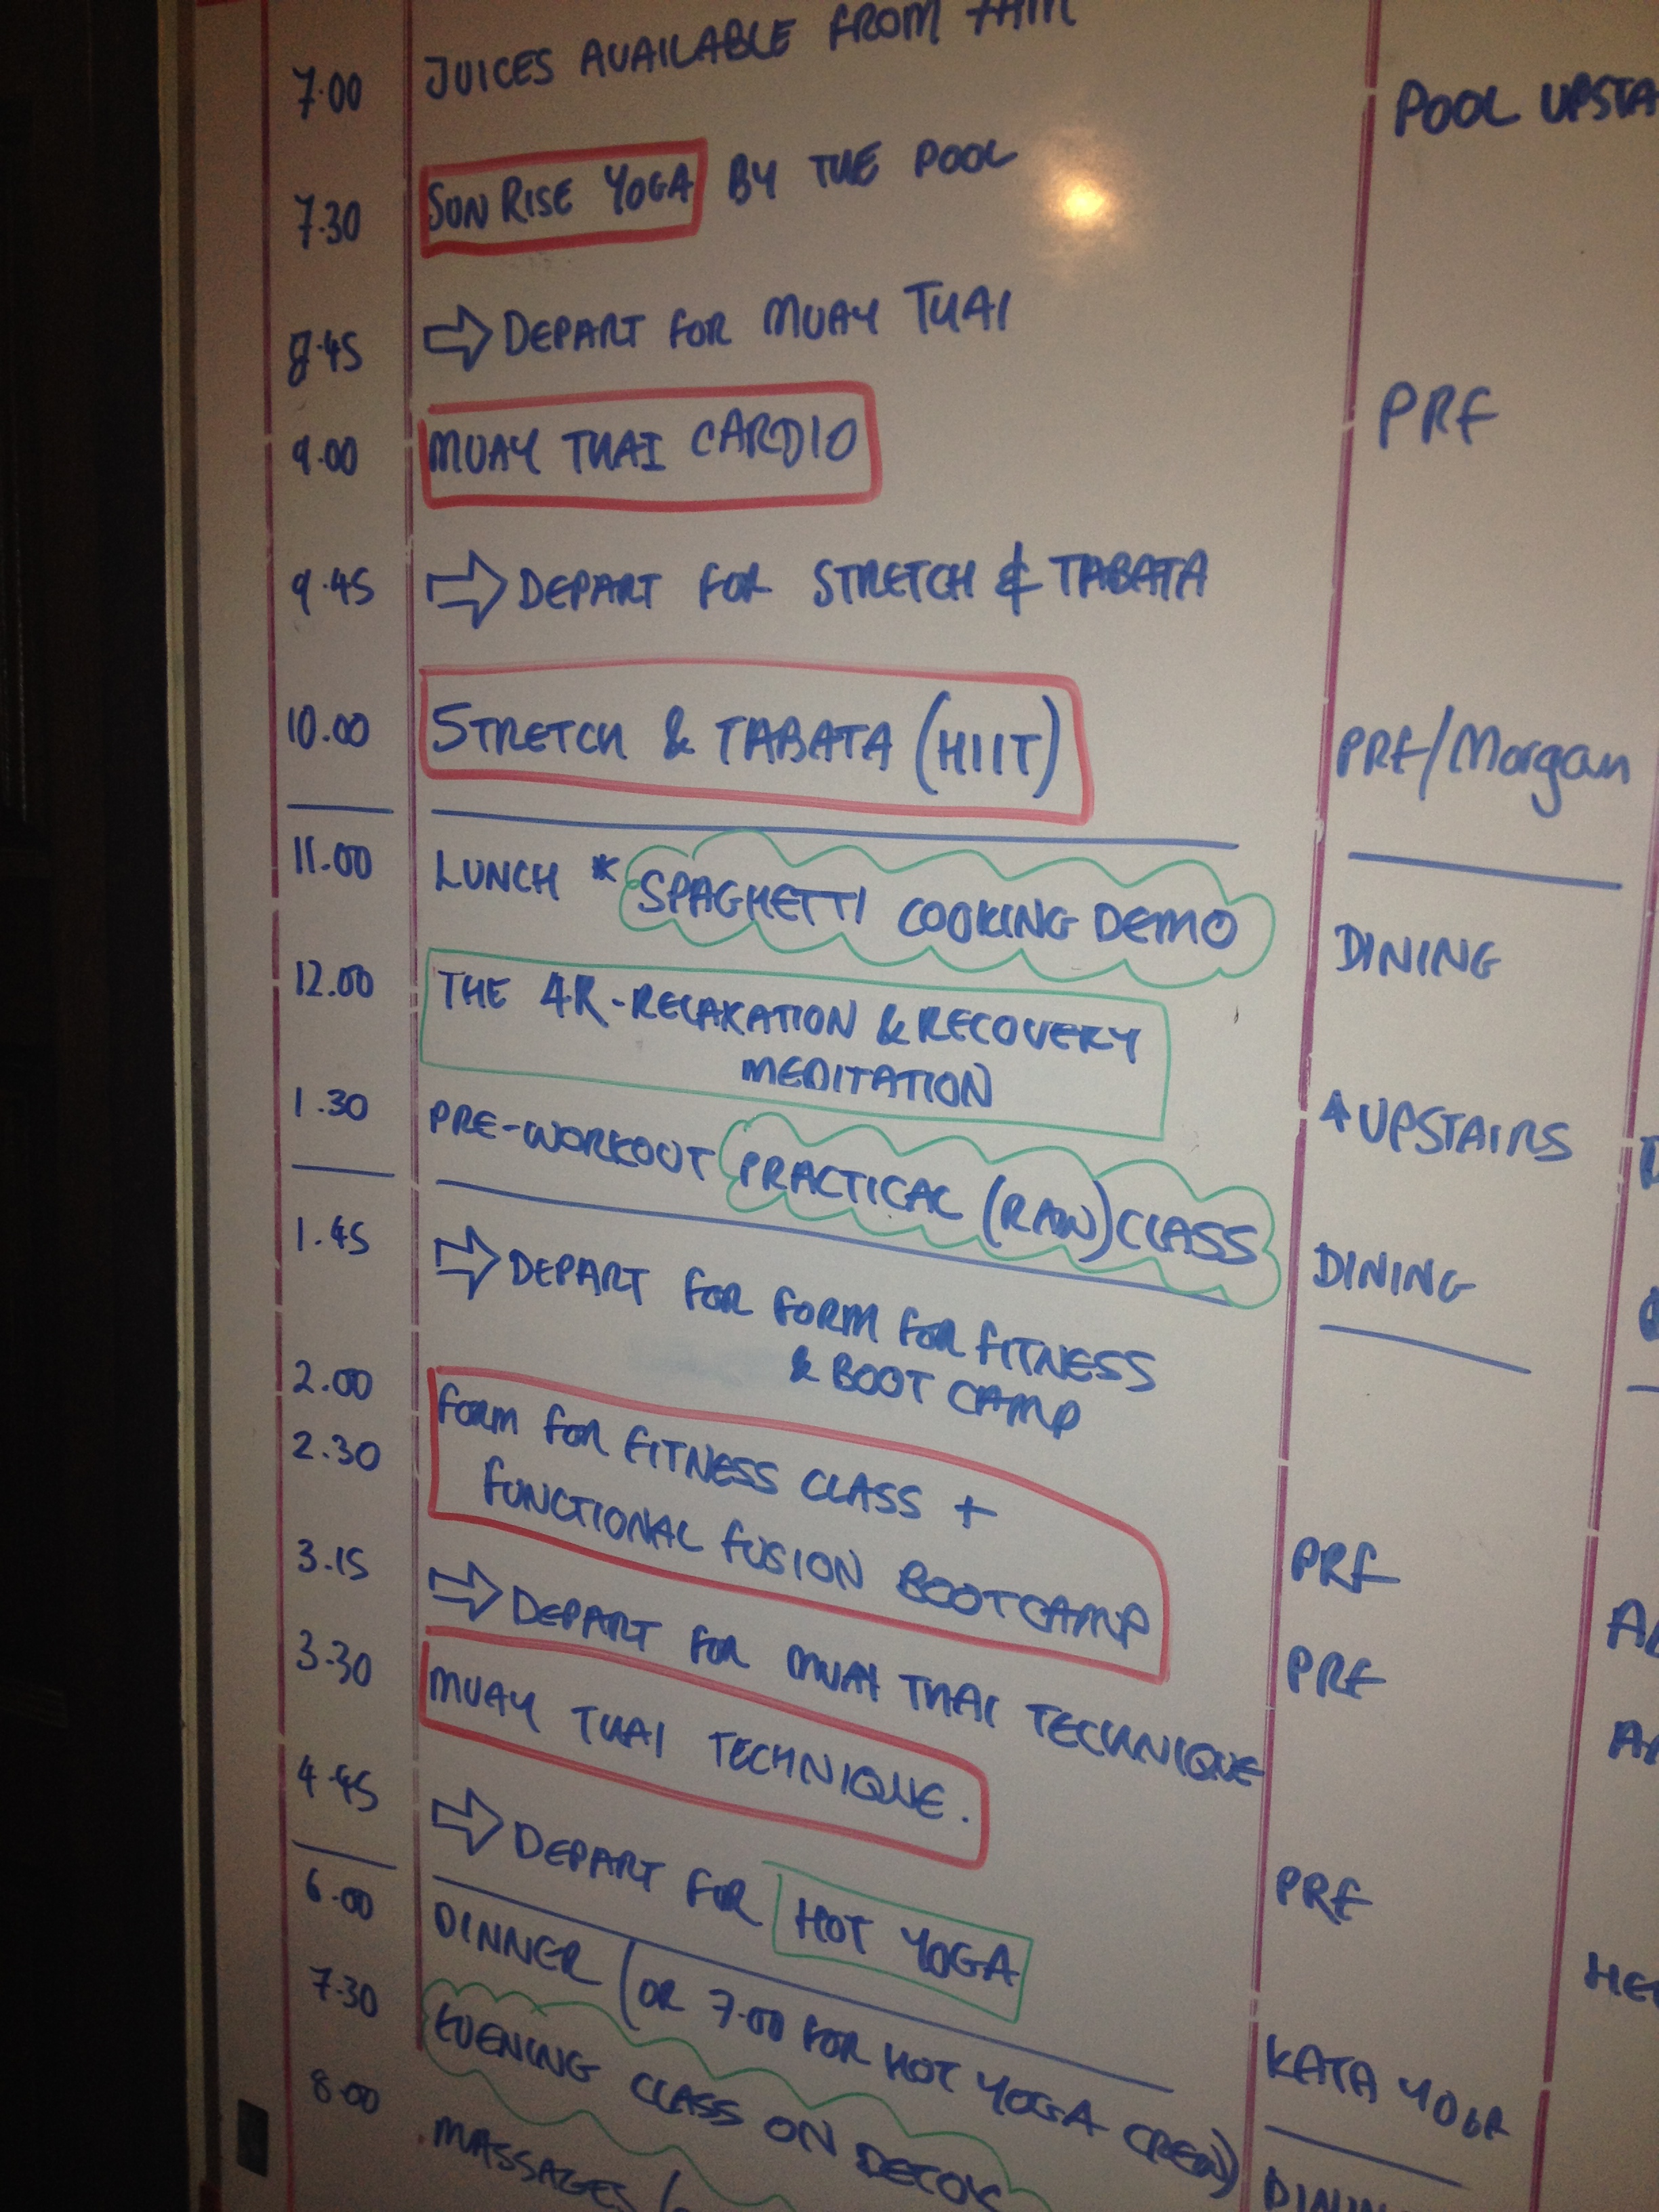 7.00 JUICES AVAILABLE FROM 7AM
POOL UPSTA
7.30 SUNRISE YOGA BY THE POOL
8.45 ⇨ DEPART FOR MUAY THAI
9.00 MUAY THAI CARDIO PRF
9.45 ⇨ DEPART FOR STRETCH & TABATA
10.00 STRETCH & TABATA (HIIT) PRF/Morgan
11.00 LUNCH * SPAGHETTI COOKING DEMO DINING
12.00 THE 4R-RELAXATION & RECOVERY
MEDITATION ↑UPSTAIRS
1.30 PRE-WORKOUT PRACTICAL (RAW) CLASS DINING
1.45 ⇨ DEPART FOR FORM FOR FITNESS
& BOOT CAMP
2.00 FORM FOR FITNESS CLASS + PRF
2.30 FUNCTIONAL FUSION BOOTCAMP PRF
3.15 ⇨ DEPART FOR MUAY THAI TECHNIQUE
3.30 MUAY THAI TECHNIQUE. PRF
4.45 ⇨ DEPART FOR HOT YOGA KATA YOGA
6.00 DINNER (OR 7.00 FOR HOT YOGA CREW) DININ
7.30 EVENING CLASS ON DETOX
8.00 MASSAGES